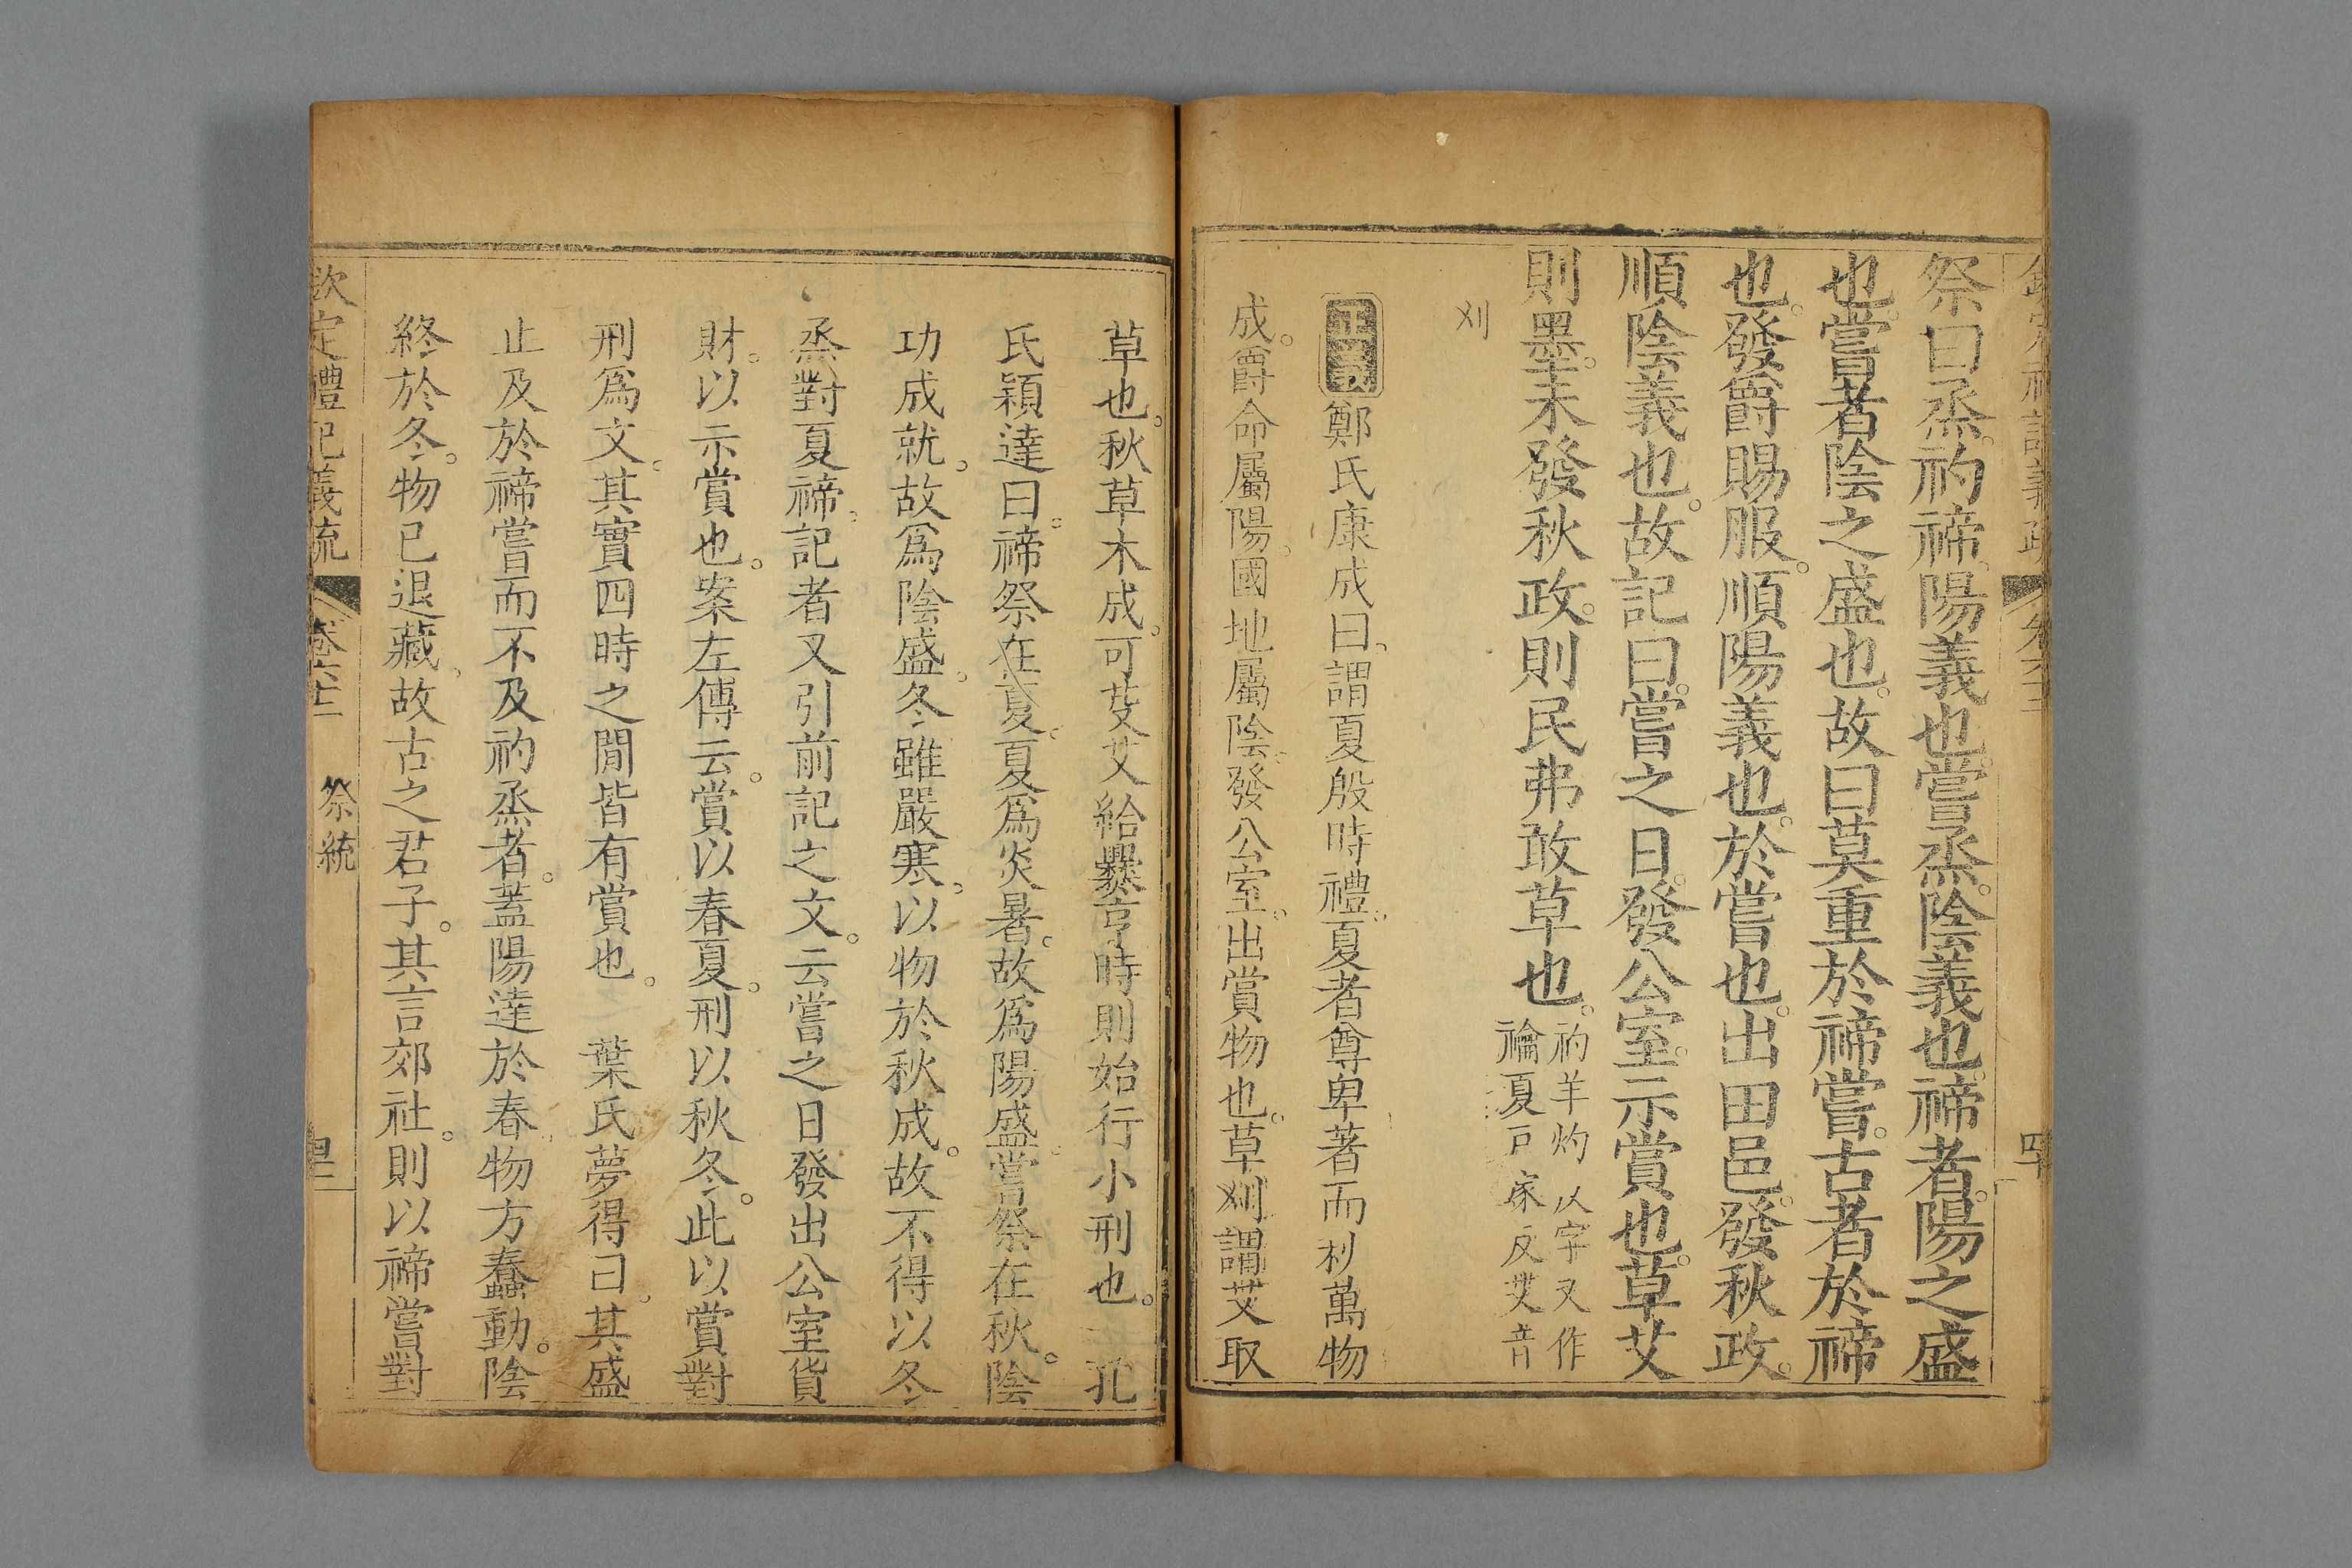 祭曰烝。礿禘。陽義也。嘗烝。陰義也。禘者。陽之盛
也。嘗者。陰之盛也。故曰莫重於禘嘗。古者於禘
也。發爵賜服。順陽義也。於嘗也。出田邑。發秋政。
順陰義也。故記曰。嘗之日。發公室。示賞也。草艾
則墨。未發秋政。則民弗敢草也。
礿羊灼 以字又作
禴夏戸嫁反艾音
刈
正義鄭氏康成曰。謂夏殷時禮。夏者尊卑著而利萬物
成。爵命屬陽。國地屬陰。發公室。出賞物也。草刈謂艾取
草也。秋草木成。可芟艾給爨亨時則始行小刑也。 孔
氏穎達曰。禘祭在夏。夏爲炎暑。故爲陽盛。嘗祭在秋。陰
功成就。故爲陰盛。冬雖嚴寒。以物於秋成。故不得以冬
烝對夏禘。記者又引前記之文。云嘗之日發出公室貨
財。以示賞也。案左傳云。賞以春夏。刑以秋冬。此以賞對
刑爲文。其實四時之閒皆有賞也。 葉氏夢得曰。其盛
止及於禘嘗而不及礿烝者。蓋陽達於春。物方蠢動。陰
終於冬。物已退藏。故古之君子。其言郊社。則以禘嘗對
欽定禮記義疏 卷六十二 祭統